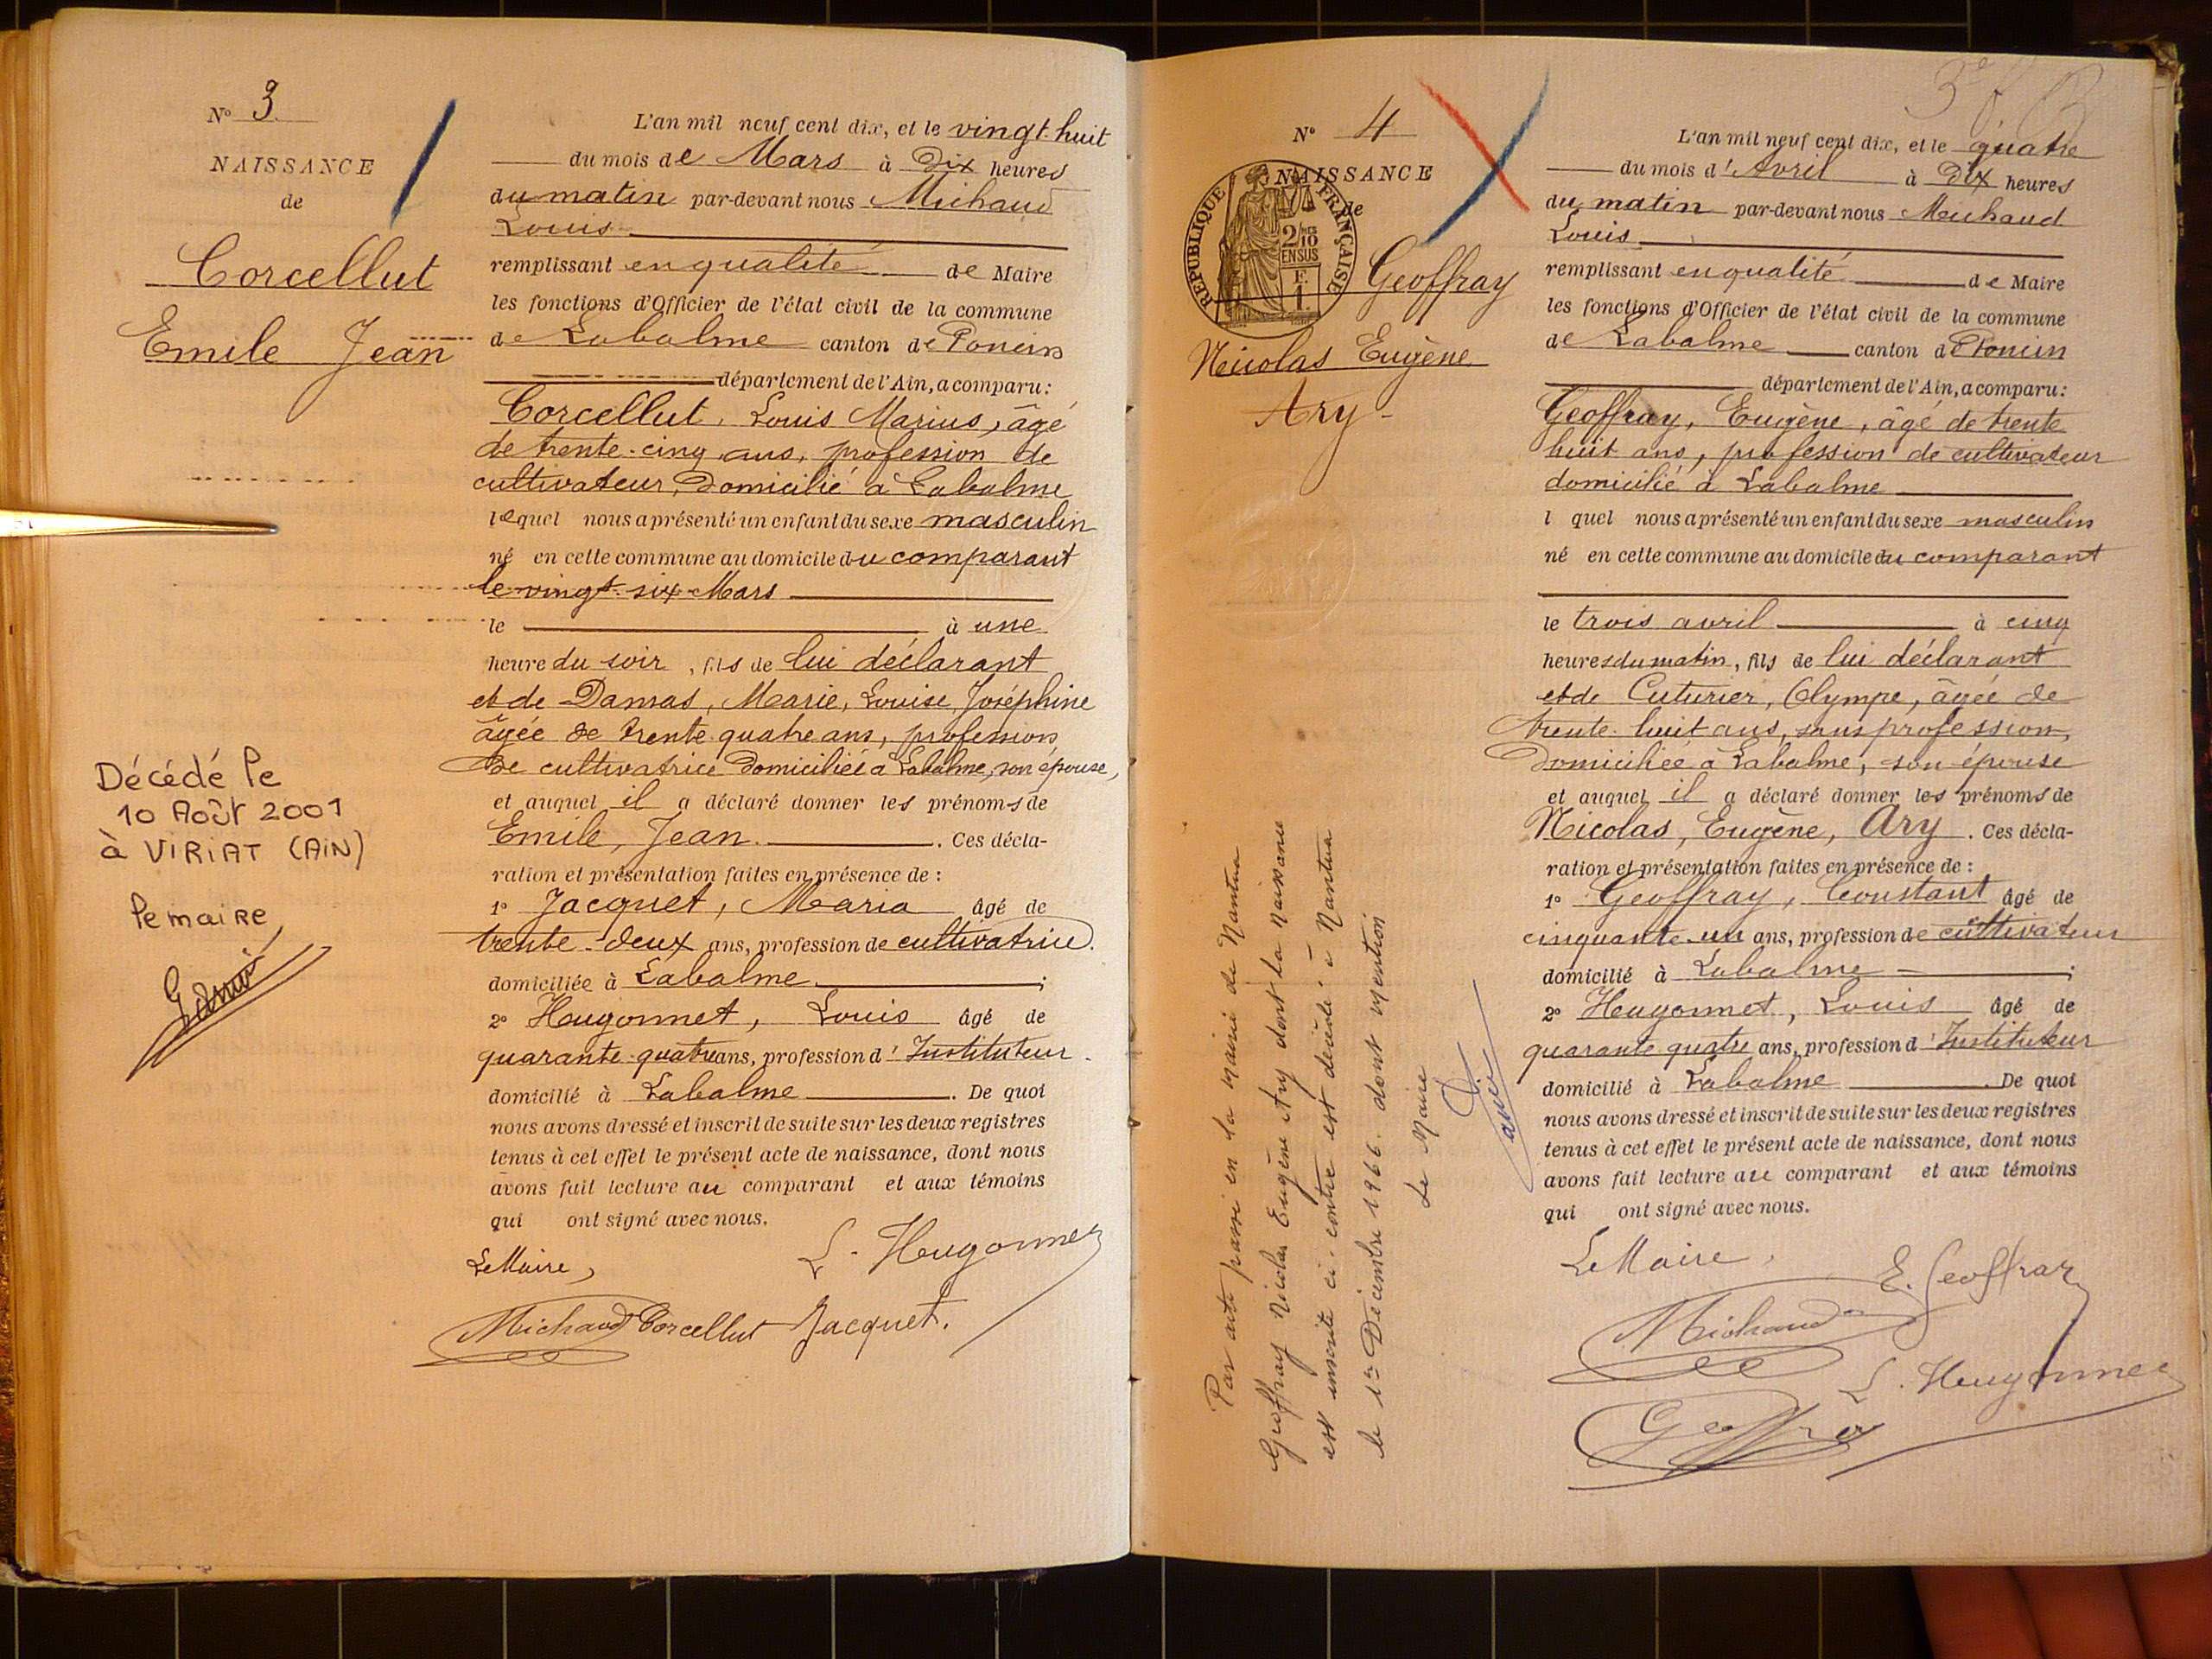 N° 3
NAISSANCE
de
Corcellut
Emile Jean
Décédé le
10 Août 2001
à VIRIAT (AIN)
le maire,
L'an mil neuf cent dix, et le vingt-huit
du mois de Mars à Dix heures
du matin par-devant nous Michaud
Louis
remplissant en qualité de Maire
les fonctions d'Officier de l'état civil de la commune
de Labalme canton de Poncin
département de l'Ain, a comparu :
Corcellut, Louis Marius, âgé
de trente-cinq ans, profession de
cultivateur, domicilié à Labalme
lequel nous a présenté un enfant du sexe masculin
né en cette commune au domicile du comparant
le vingt-six Mars
le à une
heure du soir, fils de lui déclarant
et de Damas, Marie, Louise, Joséphine
âgée de trente-quatre ans, profession
de cultivatrice domiciliée à Labalme, son épouse,
et auquel il a déclaré donner les prénoms de
Emile, Jean. Ces décla-
ration et présentation faites en présence de :
1° Jacquet, Maria âgé de
trente-deux ans, profession de cultivatrice.
domiciliée à Labalme ;
2° Hugonnet, Louis âgé de
quarante-quatre ans, profession d'Instituteur.
domicilié à Labalme. De quoi
nous avons dressé et inscrit de suite sur les deux registres
tenus à cet effet le présent acte de naissance, dont nous
avons fait lecture au comparant et aux témoins
qui ont signé avec nous.
Le Maire, L. Hugonnet
Michaud Corcellut Jacquet.
N° 4
NAISSANCE
de
RÉPUBLIQUE FRANÇAISE
2/10
EN SUS
F.
1
Geoffray
Nicolas Eugène
Ary -
Par acte passé en la mairie de Nantua
Geoffray Nicolas Eugène Ary dont la naissance
est inscrite ci-contre est décédé à Nantua
le 1er Décembre 1966. dont mention
Le Maire
L'an mil neuf cent dix, et le quatre
du mois d'Avril à Dix heures
du matin par-devant nous Michaud
Louis
remplissant en qualité de Maire
les fonctions d'Officier de l'état civil de la commune
de Labalme canton de Poncin
département de l'Ain, a comparu :
Geoffray, Eugène, âgé de trente
huit ans, profession de cultivateur
domicilié à Labalme
l quel nous a présenté un enfant du sexe masculin
né en cette commune au domicile du comparant
le trois avril à cinq
heures du matin, fils de lui déclarant
et de Cuturier, Olympe, âgée de
trente-huit ans, sans profession,
domiciliée à Labalme, son épouse
et auquel il a déclaré donner les prénoms de
Nicolas, Eugène, Ary. Ces décla-
ration et présentation faites en présence de :
1° Geoffray, Constant âgé de
cinquante-un ans, profession de cultivateur
domicilié à Labalme ;
2° Hugonnet, Louis âgé de
quarante quatre ans, profession d'Instituteur
domicilié à Labalme. De quoi
nous avons dressé et inscrit de suite sur les deux registres
tenus à cet effet le présent acte de naissance, dont nous
avons fait lecture au comparant et aux témoins
qui ont signé avec nous.
Le Maire, E. Geoffray
Michaud
L. Hugonnet
Geoffray